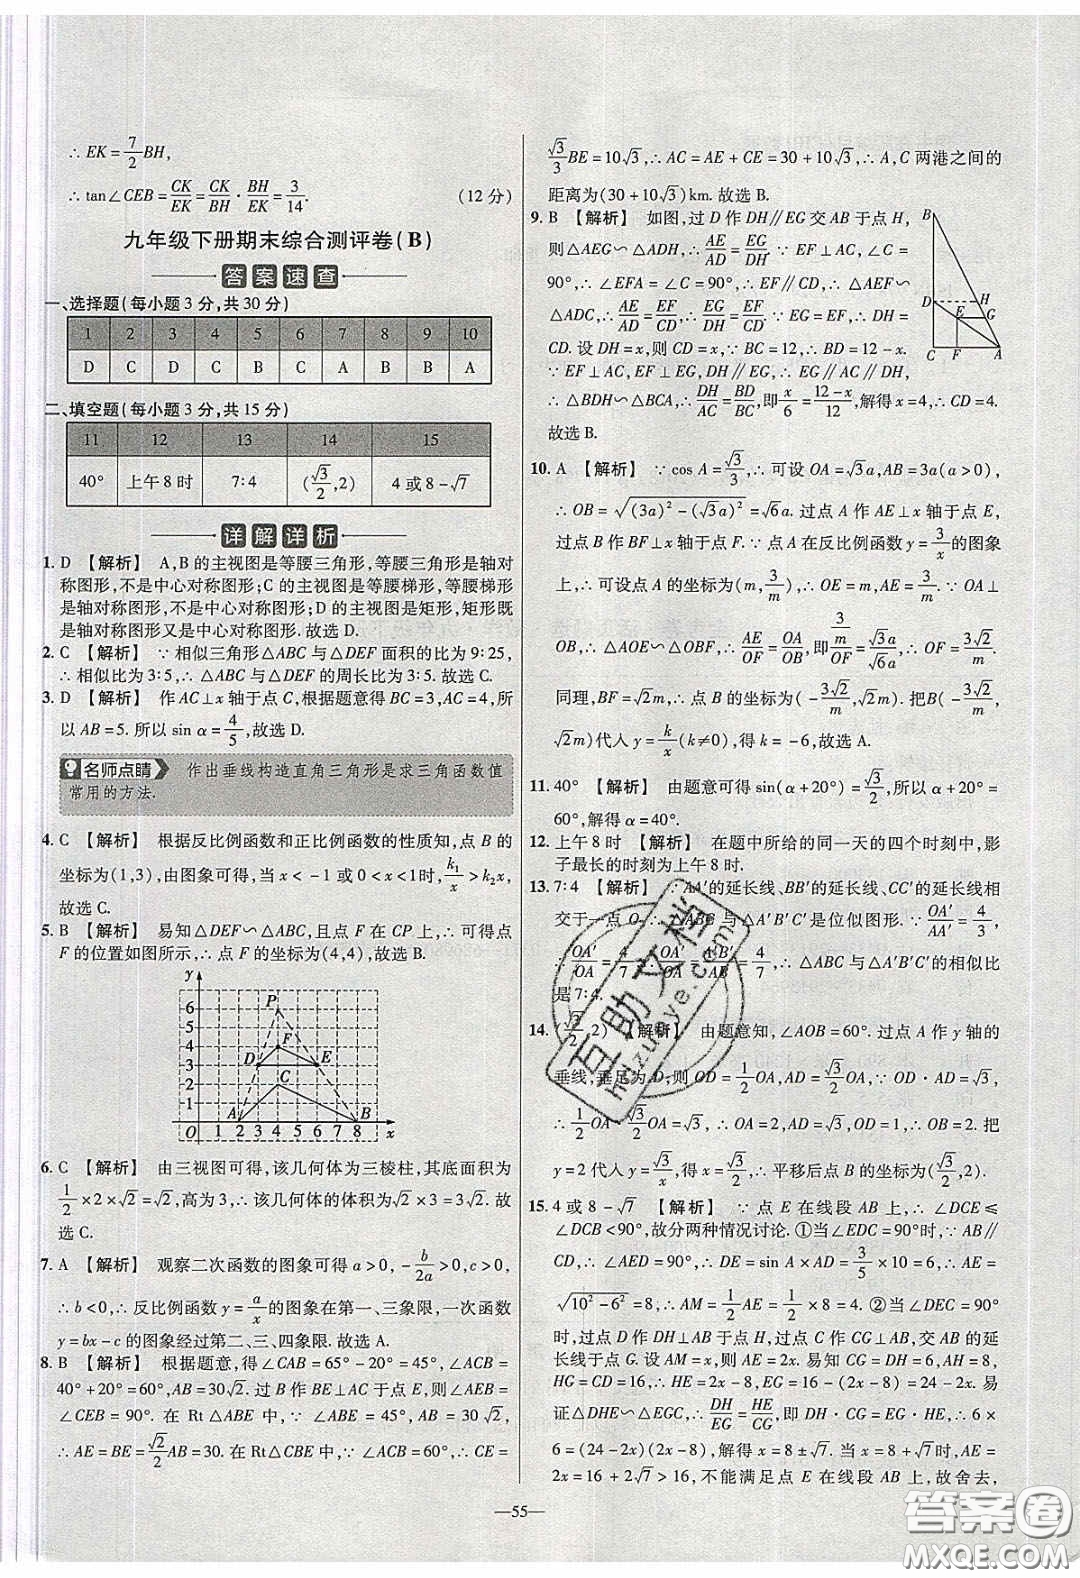 ∴ EK = 7/2 BH,
∴ tan∠CEB = CK/EK = CK/BH · BH/EK = 3/14. (12 分)
九年级下册期末综合测评卷(B)
答案速查
一、选择题(每小题 3 分,共 30 分)
1 2 3 4 5 6 7 8 9 10
D C D C B C A B B A
二、填空题(每小题 3 分,共 15 分)
11 12 13 14 15
40° 上午 8 时 7:4 (√3/2,2) 4 或 8-√7
详解详析
1. D 【解析】 A,B 的主视图是等腰三角形,等腰三角形是轴对
称图形,不是中心对称图形;C 的主视图是等腰梯形,等腰梯形
是轴对称图形,不是中心对称图形;D 的主视图是矩形,矩形既
是轴对称图形又是中心对称图形. 故选 D.
2. C 【解析】 ∵ 相似三角形△ABC 与△DEF 面积的比为 9:25,
∴ 相似比为 3:5,∴ △ABC 与△DEF 的周长比为 3:5. 故选 C.
3. D 【解析】 作 AC⊥x 轴于点 C,根据题意得 BC = 3,AC = 4,所
以 AB = 5. 所以 sin α = 4/5,故选 D.
名师点睛 作出垂线构造直角三角形是求三角函数值
常用的方法.
4. C 【解析】 根据反比例函数和正比例函数的性质知,点 B 的
坐标为(1,3),由图象可得,当 x < -1 或 0 < x < 1 时,k₁/x > k₂x,
故选 C.
5. B 【解析】 易知△DEF∽△ABC,且点 F 在 CP 上,∴ 可得点
F 的位置如图所示,∴ 点 F 的坐标为(4,4),故选 B.
y
P
6
5
F
4
D E
3
C
2
1
A B
O 1 2 3 4 5 6 7 8 x
6. C 【解析】 由三视图可得,该几何体为三棱柱,其底面积为
1/2 × 2 × √2 = √2,高为 3,∴ 该几何体的体积为√2 × 3 = 3√2. 故
选 C.
7. A 【解析】 观察二次函数的图象可得 a > 0, -b/2a > 0,c > 0,
∴ b < 0,∴ 反比例函数 y = a/x 的图象在第一、三象限,一次函数
y = bx - c 的图象经过第二、三、四象限. 故选 A.
8. B 【解析】 根据题意,得∠CAB = 65° - 20° = 45°,∠ACB =
40° + 20° = 60°,AB = 30√2. 过 B 作 BE⊥AC 于点 E,则∠AEB =
∠CEB = 90°. 在 Rt△ABE 中,∵ ∠ABE = 45°,AB = 30√2,
∴ AE = BE = √2/2 AB = 30. 在 Rt△CBE 中,∵ ∠ACB = 60°,∴ CE =
√3/3 BE = 10√3,∴ AC = AE + CE = 30 + 10√3,∴ A,C 两港之间的
距离为(30 + 10√3)km. 故选 B.
9. B 【解析】 如图,过 D 作 DH∥EG 交 AB 于点 H,
则△AEG∽△ADH,∴ AE/AD = EG/DH. ∵ EF⊥AC,∠C =
90°,∴ ∠EFA = ∠C = 90°,∴ EF∥CD,∴ △AEF∽
△ADC,∴ AE/AD = EF/CD,∴ EG/DH = EF/CD. ∵ EG = EF,∴ DH =
CD. 设 DH = x,则 CD = x,∵ BC = 12,∴ BD = 12 - x.
∵ EF⊥AC,EF⊥EG,DH∥EG,∴ EG∥AC∥DH,
∴ △BDH∽△BCA,∴ DH/AC = BD/BC,即 x/6 = (12-x)/12,解得 x = 4,∴ CD = 4.
故选 B.
B
D H
E G
C F A
10. A 【解析】 ∵ cos A = √3/3,∴ 可设 OA = √3a,AB = 3a(a > 0),
∴ OB = √((3a)² - (√3a)²) = √6a. 过点 A 作 AE⊥x 轴于点 E,
过点 B 作 BF⊥x 轴于点 F. ∵ 点 A 在反比例函数 y = 3/x 的图象
上,∴ 可设点 A 的坐标为(m,3/m),∴ OE = m,AE = 3/m. ∵ OA⊥
OB,∴ △AOE∽△OBF,∴ AE/OF = OA/OB,即 (3/m)/OF = √3a/√6a,∴ OF = 3√2/m.
同理,BF = √2m,∴ 点 B 的坐标为(-3√2/m,√2m). 把 B(-3√2/m,
√2m)代入 y = k/x (k≠0),得 k = -6,故选 A.
11. 40° 【解析】 由题意可得 sin(α + 20°) = √3/2,所以 α + 20° =
60°,解得 α = 40°.
12. 上午 8 时 【解析】 在题中所给的同一天的四个时刻中,影
子最长的时刻为上午 8 时.
13. 7:4 【解析】 ∵AA′的延长线、BB′的延长线、CC′的延长线相
交于一点 O,∴ △ABC 与△A′B′C′是位似图形. ∵ OA′/AA′ = 4/3,
∴ OA′/OA = 4/7. ∵ OA′/OA = A′B′/AB = 4/7,∴ △ABC 与△A′B′C′的相似比
是 7:4.
14. (√3/2,2) 【解析】 由题意知,∠AOB = 60°. 过点 A 作 y 轴的
垂线,垂足为 D,则 OD = 1/2 OA,AD = √3/2 OA,∵ OD · AD = √3,
∴ 1/2 OA · √3/2 OA = √3,∴ OA = 2,∴ OD = 1,∴ OB = 2. 把
y = 2 代入 y = √3/x,得 x = √3/2,∴ 平移后点 B 的坐标为(√3/2,2).
15. 4 或 8 - √7 【解析】 ∵ 点 E 在线段 AB 上,∴ ∠DCE ≤
∠DCB < 90°,故分两种情况讨论. ①当∠EDC = 90°时,∵ AB∥
CD,∴ ∠AED = ∠EDC = 90°,∴ DE = sin A × AD = 3/5 × 10 = 6,∴ AE =
√(10² - 6²) = 8,∴ AM = 1/2 AE = 1/2 × 8 = 4. ②当∠DEC = 90°
时,过点 D 作 DH⊥AB 于点 H,过点 C 作 CG⊥AB,交 AB 的延
长线于点 G. 设 AM = x,则 AE = 2x. 易知 CG = DH = 6,AH = 8,
HG = CD = 16,∴ HE = 2x - 8,EG = 16 - (2x - 8) = 24 - 2x. 易
证△DHE∽△EGC,∴ DH/EG = HE/CG,即 DH · CG = EG · HE,∴ 6 ×
6 = (24 - 2x)(2x - 8),解得 x = 8 ± √7. 当 x = 8 + √7时,AE =
2x = 16 + 2√7 > 16,不能满足点 E 在线段 AB 上,故舍去,
—55—
互助文档
hdzuoye.com
答案圈
MXQE.COM